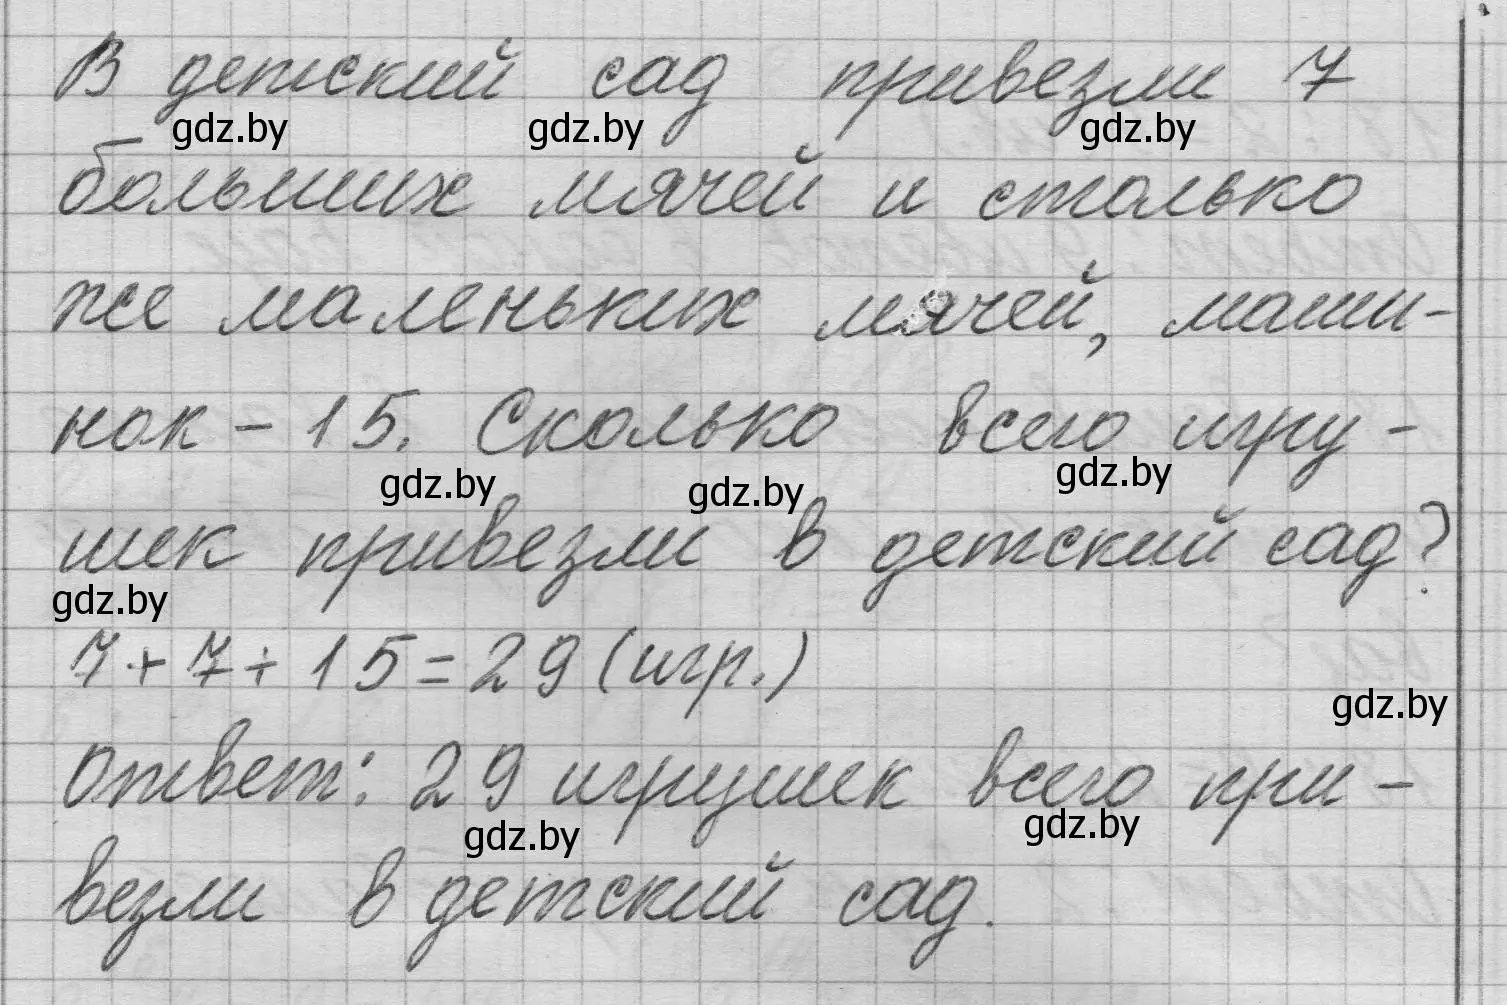 В детский сад привезли 7
gdz.by gdz.by gdz.by
больших мячей и столько
же маленьких мячей, маши-
нок - 15. Сколько всего игру-
gdz.by gdz.by gdz.by
шек привезли в детский сад?
gdz.by
7+7+15=29 (игр.)
gdz.by
Ответ: 29 игрушек всего при-
gdz.by gdz.by
везли в детский сад.